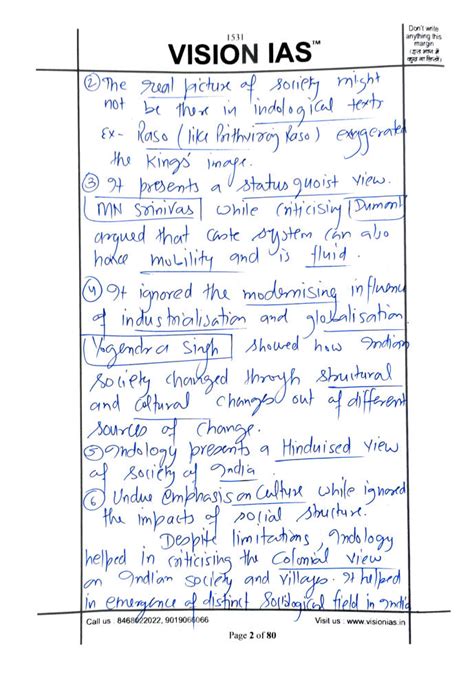 1531
VISION IAS™
Don't write
anything this
margin
(इस भाग में
कुछ ना लिखें)
② The real picture of society might
not be there in indological texts
Ex- Raso (like Prithviraj Raso) exaggerated
the Kings' image.
③ It presents a status quoist view.
MN Srinivas while criticising Dumont
argued that caste system can also
have mobility and is fluid.
④ It ignored the modernising influence
of industrialisation and globalisation
Yogendra Singh showed how Indian
society changed through structural
and cultural changes out of different
sources of change.
⑤ Indology presents a Hinduised view
of society of India
⑥ Undue emphasis on culture while ignored
the impacts of social structure.
Despite limitations, Indology
helped in criticising the Colonial view
on Indian society and villages. It helped
in emergence of distinct sociological field in India
Call us : 8468022022, 9019066066
Visit us : www.visionias.in
Page 2 of 80